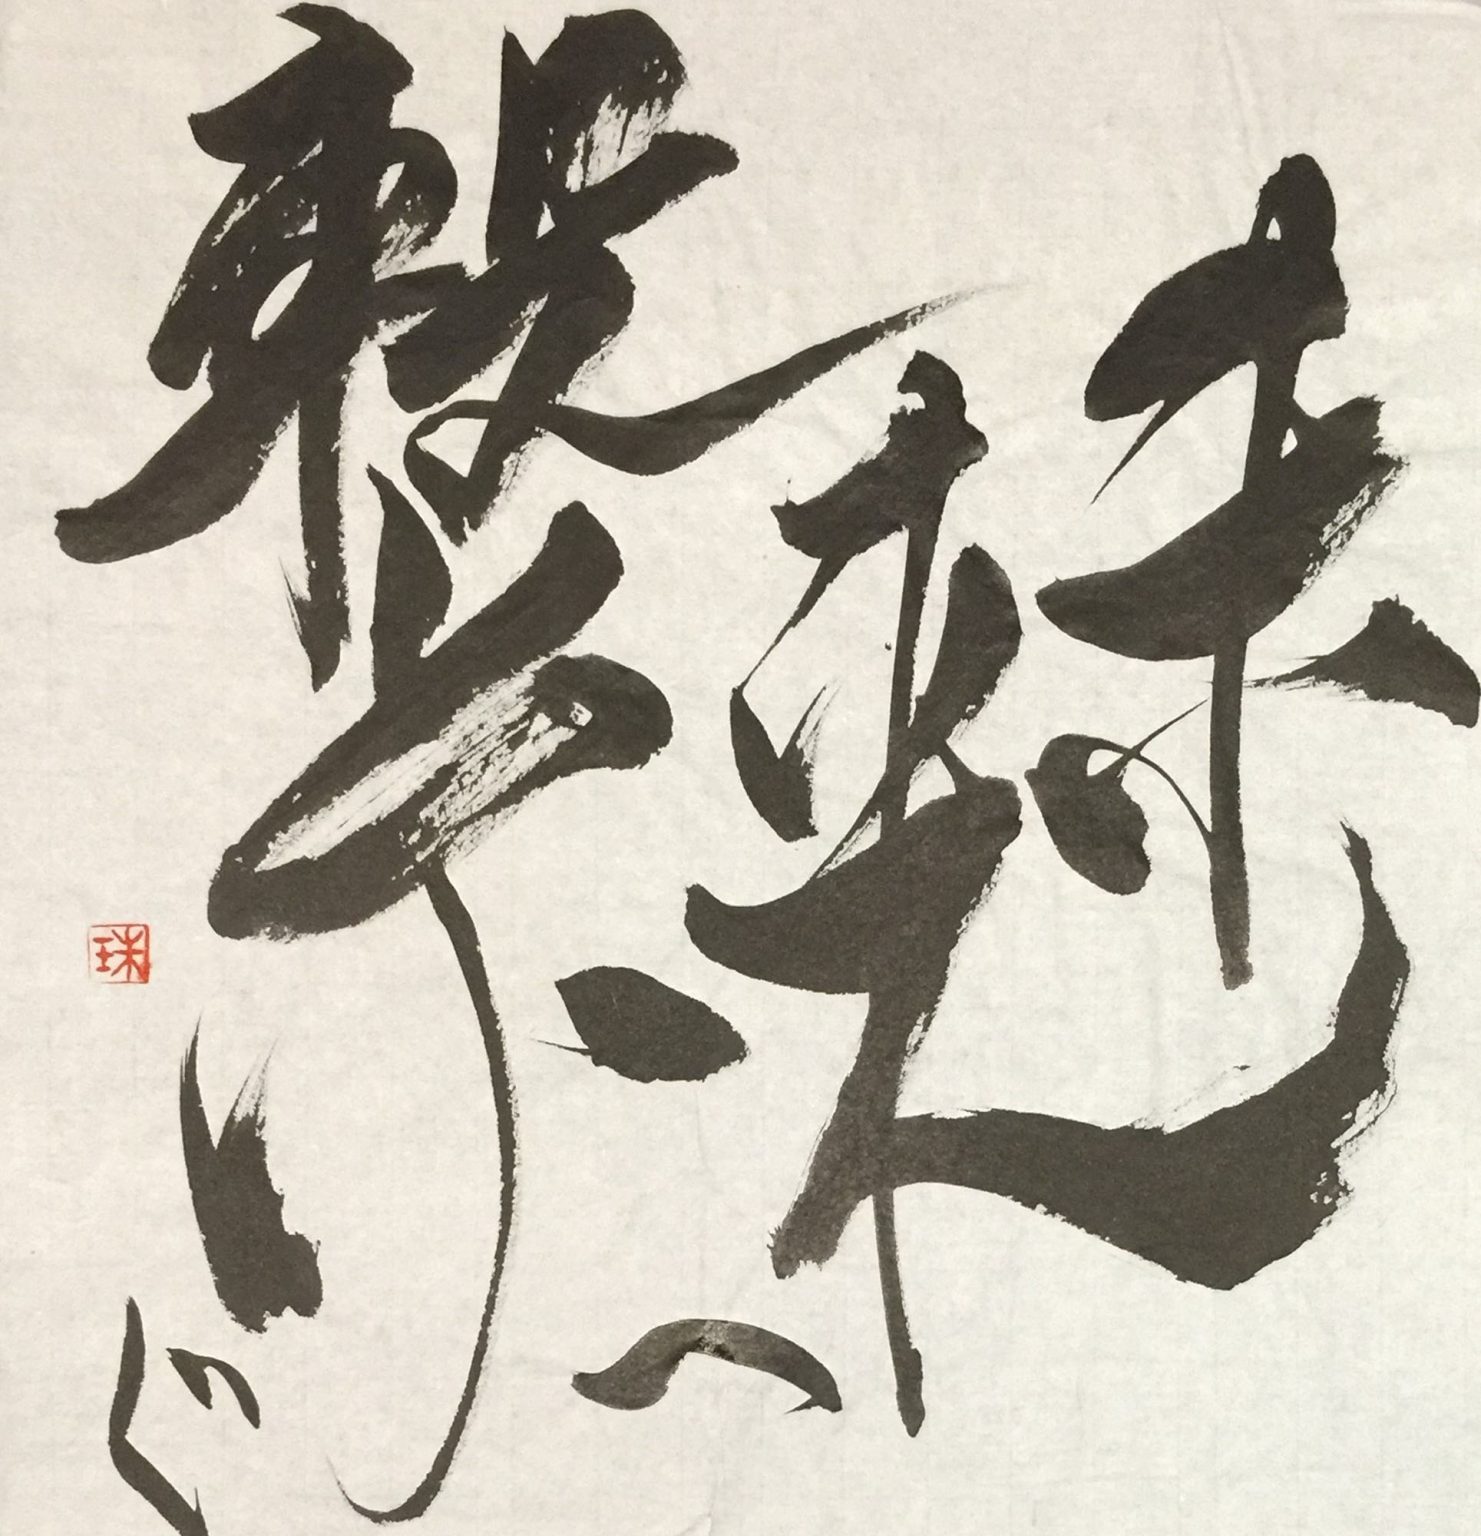 未来へ
繋ぐ
珠